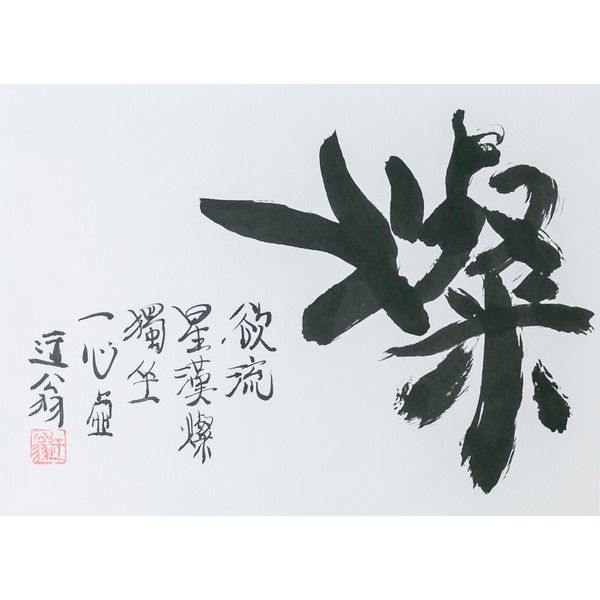 燦
欲流
星漢燦
獨坐
一心虛
翁